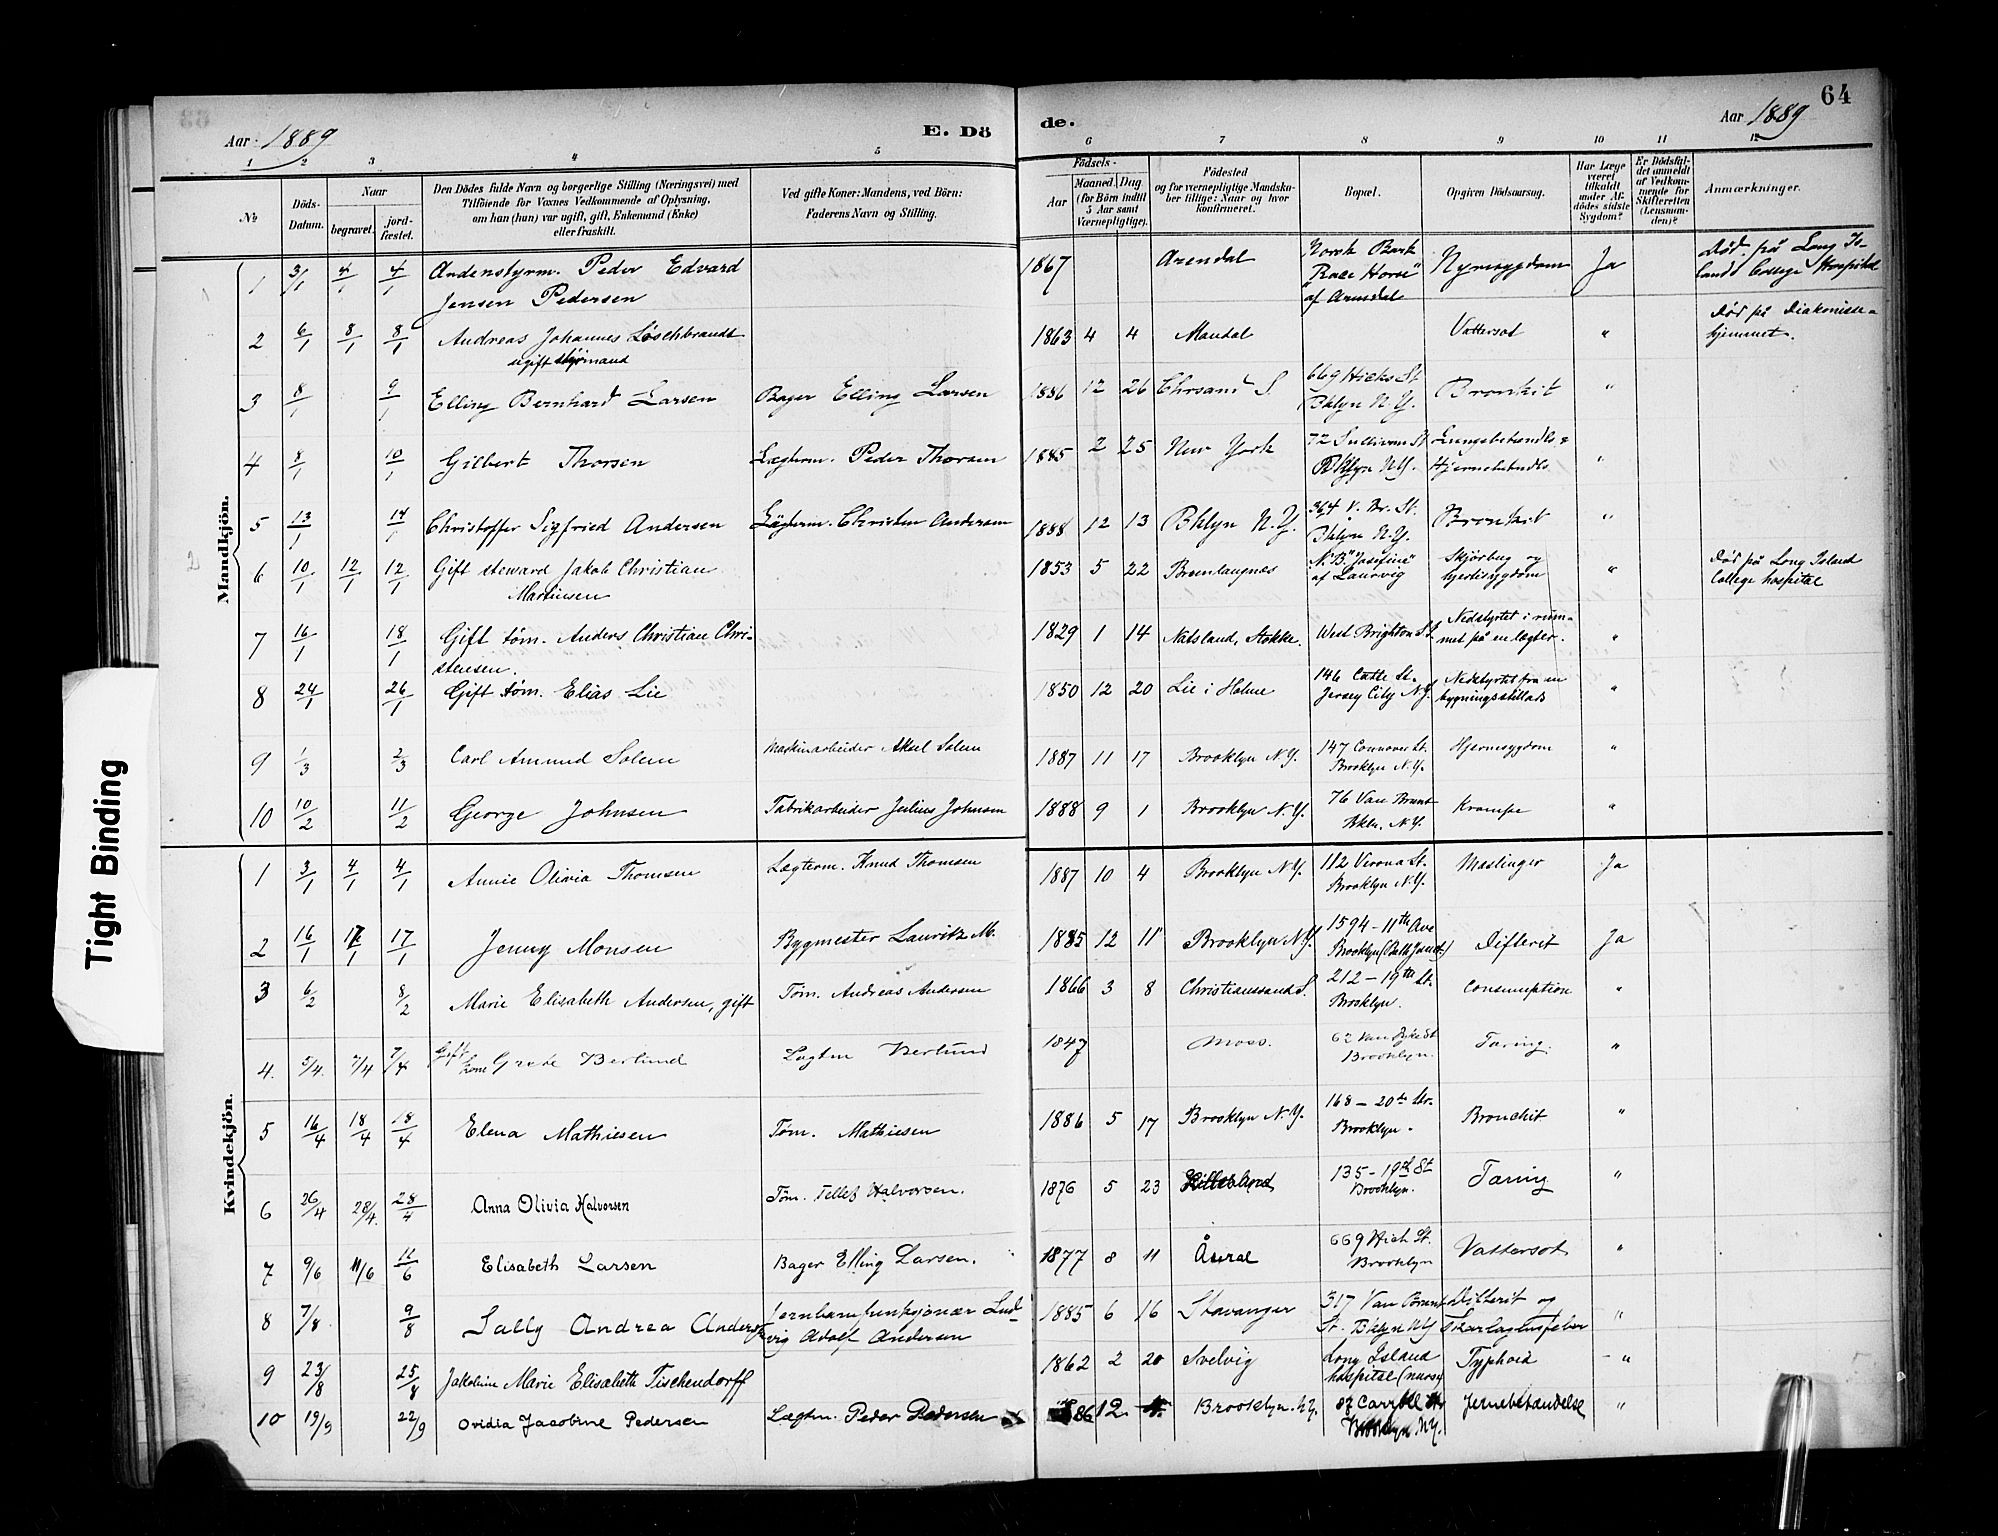 64
Aar 1889
E. Dö
de.
Aar 1889
1 2 3 4 5 6 7 8 9 10 11 12
№
Döds-Datum.
Naar
begravet.
jord-fæstet.
Den Dödes fulde Navn og borgerlige Stilling (Næringsvei) med
Tilföiende for Voxnes Vedkommende af Oplysning,
om han (hun) var ugift, gift, Enkemand (Enke)
eller fraskilt.
Ved gifte Koner: Mandens, ved Börn:
Faderens Navn og Stilling.
Födsels-
Aar
Maaned. Dag
(for Börn indtil
5 Aar samt
Værnepligtige).
Födested
og for værnepligtige Mandska-
ber tillige: Naar og hvor
konfirmeret.
Bopæl.
Opgiven Dödsaarsag.
Har Læge
været
tilkaldt
under Af-
dödes sidste
Sygdom?
Er Dödsfal-
det anmeldt
af Vedkom-
mende for
Skifteretten
(Lensman-
den)?
Anmærkninger.
Mandkjön.
1 3/1 4/1 4/1 Andenstyrm. Peder Edvard Jensen Pedersen 1867 Arendal Norsk Bark "Race Horse" af Arendal Nyresygdom Ja Död på Long Island College Hospital
2 6/1 8/1 8/1 Andreas Johannes Löschbrandt ugift styrmand 1863 4 4 Mandal Vattersot " Död på Diakonissehjemmet.
3 8/1 9/1 Elling Bernhard Larsen Bager Elling Larsen 1886 12 26 Chrsand S. 669 Hicks St. Bklyn N.Y. Bronkit "
4 8/1 10/1 Gilbert Thorsen Lægterm. Peder Thorsen 1885 2 25 New York 72 Sullivan St Bklyn NY. Lungebetændls. & Hjernebetndls "
5 13/1 14/1 Christoffer Sigfried Andersen Lägterm. Christen Andersen 1888 12 13 Bklyn N.Y. 364 V. Br. St. Bklyn N.Y. Bronkit "
6 10/1 12/1 12/1 Gift steward Jakob Christian Martinsen 1853 5 22 N.B. "Josefine" af Laurvig Skjørbug og hjertesygdom " Död på Long Island College hospital
7 16/1 18/1 Gift töm. Anders Christian Christensen. 1829 1 14 Natsland, Stokke. West Brighton S.I. Nedstyrtet i rummet på en lægter. "
8 24/1 26/1 Gift töm. Elias Lie 1850 12 20 Lie i Holme 146 St. Jersey City N.Y. Nedstyrtet fra en bygningsstillads "
9 1/3 2/3 Carl Amund Solem Maskinarbeider Aksel Solem 1887 11 17 Brooklyn N.Y. 147 Connover St. Brooklyn N.Y. Hjernesygdom "
10 10/2 11/2 George Johnsen Fabrikarbeider Julius Johnsen 1888 9 1 Brooklyn N.Y. 76 Van Brunt Bkln. N.Y. Krampe "
Kvindekjön.
1 3/1 4/1 4/1 Annie Olivia Thomsen Lægterm. Knud Thomsen 1887 10 4 Brooklyn N.Y. 112 Verona St. Brooklyn N.Y. Meslinger Ja
2 16/1 17/1 Jenny Monsen Bygmester Lauritz M. 1885 12 11 Brooklyn N.Y. 1594 - 11th Ave Brooklyn Difterit Ja
3 6/2 8/2 Marie Elisabeth Andersen, gift Töm. Andreas Andersen 1866 3 8 Christianssand S. 212 - 19th St. Brooklyn. Consumption "
4. 5/4. 7/4 7/4 Gift kone Grete Berlund Lægtm Berlund 1847 Moss. 62 Van Dyke St Brooklyn. Tæring. "
5 16/4 18/4 18/4 Elena Mathiesen Töm. Mathiesen 1886 5 17 Brooklyn N.Y. 168 - 20th Str. Brooklyn. Bronchit "
6 26/4 28/4. 28/4 Anna Olivia Halvorsen Töm. Tellef Halvorsen. 1876 5 23 135 - 19th St Brooklyn. Tæring "
7 9/6 11/6 11/6 Elisabeth Larsen Bager Elling Larsen. 1877 8 11 Åseral 669 Hick St. Brooklyn Vattersot "
8 7/8 9/8 Sally Andrea Andersen Jernbanefunksjonær Ludvig Adolf Andersen 1885 6 16 Stavanger 317 Van Brunt St. Bklyn NY Difterit og Skarlagensfeber "
9 23/8 25/8 Jakobine Marie Elisabeth Tischendorff 1862 2 20 Svelvig Long Island hospital (nurse) Typhoid "
10 19/9 22/9 Ovidia Jacobine Pedersen Lægtm. Peder Pedersen 86 12 Brooklyn. NY. 87 Carroll Str Brooklyn NY. Jernebetændelse "
Tight Binding